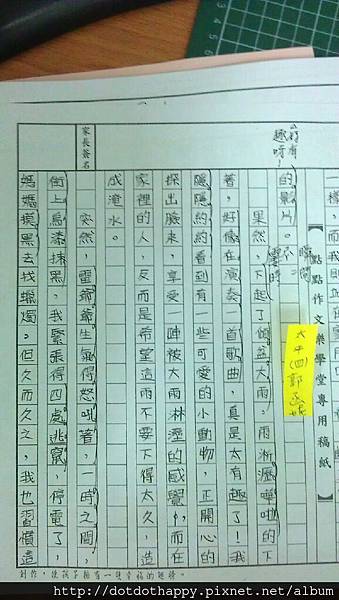 一樣，而我即
點點作文樂學堂專用稿紙
太平(四)郭
的影片。不
瞬間
霎時
好有
趣呀！
果然，下起了傾盆大雨。雨淅瀝嘩啦的下
著，好像在演奏一首歌曲，真是太有趣了！我
隱隱約約看到有一些可愛的小動物，正開心的
探出臉來，享受一陣被大雨淋溼的感覺，而在
家裡的人，反而是希望這雨不要下得太久，造
成淹水。
突然，雷爺爺生氣得怒吼著，一時之間，
街上烏漆抹黑，我緊張得四處逃竄，停電了，
媽媽摸黑去找蠟燭。但久而久之，我也習慣這
家長簽名
創作，使孩子擁有一雙幸福的翅膀。
http://dotdothappy.pixnet.net/album